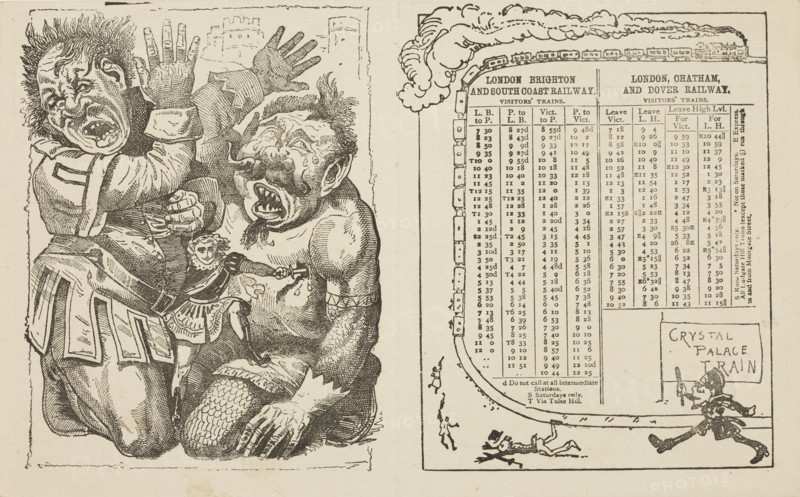 LONDON BRIGHTON
AND SOUTH COAST RAILWAY.
VISITORS' TRAINS.
L. B. to P. P. to L. B. Vict. to P. P. to Vict.
7 30 8 27d 8 55d 9 48d
8 23 8 43d 9 27d 10 2
8 50 9 9d 9 33 10 17
9 35 9 27d 9 41 10 49
T10 0 9 55d 10 8 11 5
10 40 10 18 10 18 11 48
11 23 10 40 10 33 12 18
11 45 11 2 11 20
T12 15 11 35 12 0 1 39
12 25 T12 25 12 40 2 12
12 48 12 28 1 28 2 26
T1 30 12 33 1 40 3 0
1 45 1 12 2 20d 3 34
2 12d 2 9 2 45 4 16
S2 25d T2 45 3 15 4 45
2 35 2 50 3 35 5 1
3 10d 3 17 4 11 5 10
3 50 T3 21 4 19 5 36
4 25d 4 7 4 48d 5 58
4 50d T4 22 5 9 6 18
5 13 4 44 5 18 6 36
5 37 5 5 5 40d 6 52
5 53 5 38 5 45 7 38
6 20 6 14 6 0 7 48
7 13 T6 25 6 10 8 13
7 48 6 39 6 53 8 28
8 35 7 26 7 30 9 0
9 45 8 25 7 40 10 10
11 0 T8 33 8 25 10 25
12 0 9 10 8 57 11 6
.. 9 40 11 25
.. 11 51 9 49 12 10d
10 44 12 25
d Do not call at all intermediate
Stations.
S Saturdays only.
T Via Tulse Hill.
LONDON, CHATHAM,
AND DOVER RAILWAY.
VISITORS' TRAINS.
Leave Vict. Leave L. H. Leave High Lvl.
For Vict. For L. H.
7 18 9 4 9 59
8 12 9 26 10 33 10 59
8 58 11 10 11 37
9 42 10 9 11 49 12 9
10 16 10 40 12 45
10 52 11 8 1 30
11 48 1 17 2 23
12 13 11 54 1 53
12 40 1 16 2 47 3 18
1 33 1 48 3 34 3 55
1 57 4 12 4 20
2 27 2 33 4 48
2 57 3 30 4 56
3 47 5 33 5 18
4 43 4 20 5 42
5 30 4 53
6 0 6 52 6 30
6 30 5 23 7 34 7 5
7 20 5 53 8 13 7 50
7 55 8 47 8 30
8 30 6 48 9 38 9 20
9 40 7 30 10 35 10 28
10 52 8 6 11 43
S Runs Saturdays only. * Not on Saturdays. E Express.
All Ludgate Hill Trains (except those marked E) run through
to and from Moorgate Street.
CRYSTAL
PALACE
TRAIN